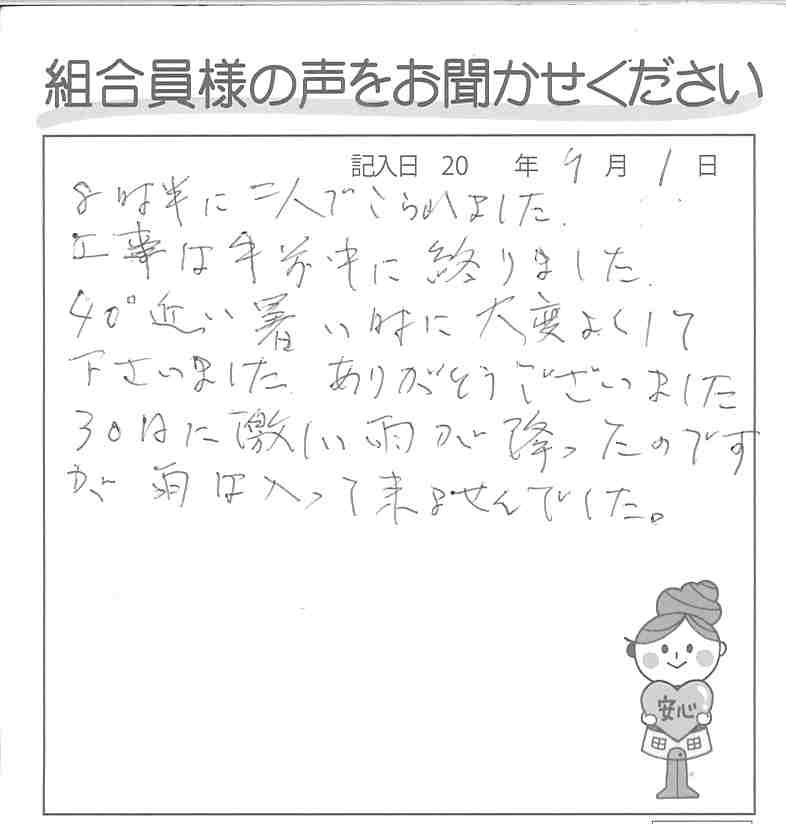 組合員様の声をお聞かせください
記入日 20 年 9月 1日
8時半に二人でこられました.
工事は午前中に終りました.
40°近い暑い時に大変よくして
下さいました ありがとうございました
30日に激しい雨が降ったのです
が 雨は入って来ませんでした。
安心